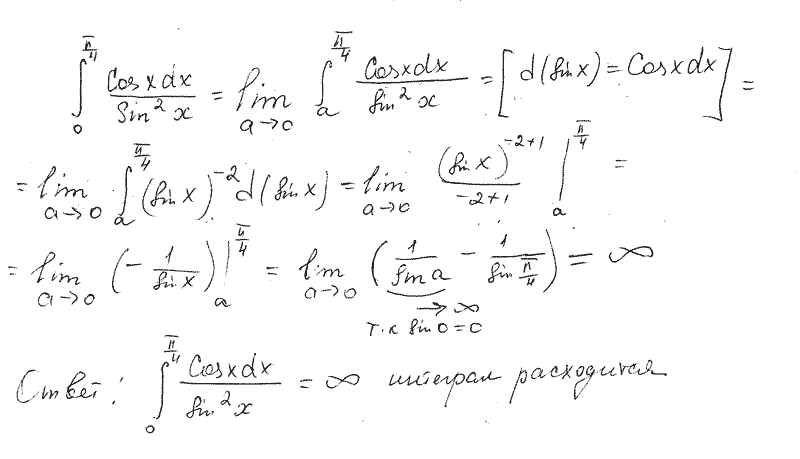 ∫₀^{π/4} Cosxdx / Sin²x = lim_{a→0} ∫ₐ^{π/4} Cosxdx / Sin²x = [d(Sinx) = Cosxdx] =
= lim_{a→0} ∫ₐ^{π/4} (Sinx)⁻² d(Sinx) = lim_{a→0} (Sinx)^{-2+1} / -2+1 |ₐ^{π/4} =
= lim_{a→0} (- 1/Sinx) |ₐ^{π/4} = lim_{a→0} (1/Sina - 1/Sin π/4) = ∞
→∞
т.к Sin0=0
Ответ: ∫₀^{π/4} Cosxdx / Sin²x = ∞ интеграл расходится